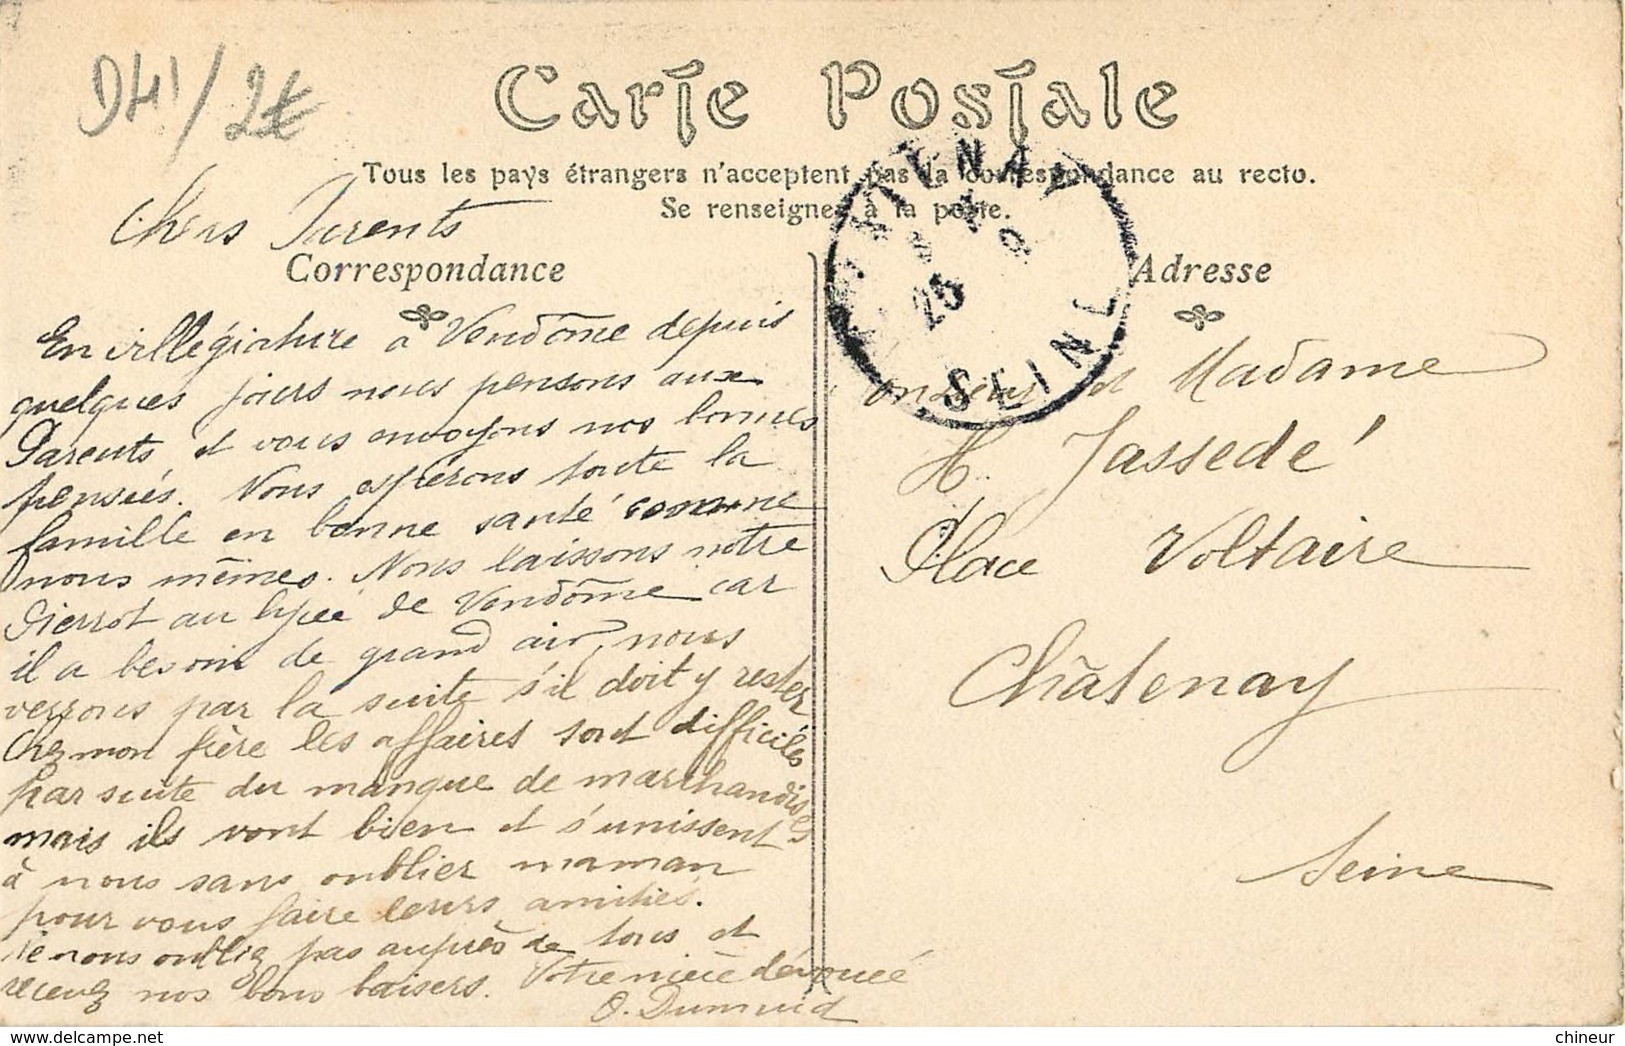 D41/2€
Carte Postale
Tous les pays étrangers n'acceptent pas la correspondance au recto.
Se renseigner à la poste.
Chers Parents
Correspondance
En villégiature a Vendôme depuis
quelques jours nous pensons aux
Parents et vous envoyons nos bonnes
pensées. Nous espérons toute la
famille en bonne santé comme
nous mêmes. Nous laissons notre
Pierrot au lycée de Vendôme car
il a besoin de grand air, nous
verrons par la suite s'il doit y rester
Chez mon frère les affaires sont difficiles
par suite du manque de marchandises
mais ils vont bien et s'unissent
à nous sans oublier maman
pour vous faire leurs amitiés.
Ne nous oubliez pas auprès de tous et
recevez nos bons baisers. Votre nièce dévouée
O.
25
SEINE
Adresse
Monsieur et Madame
H. Jassedé
Place Voltaire
Châtenay
Seine
www.delcampe.net
chineur